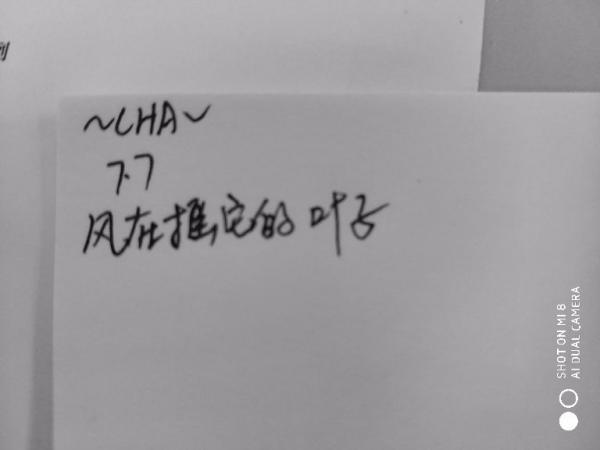 到
~CHA~
7.7
风在推它的叶子
SHOT ON MI 8
AI DUAL CAMERA